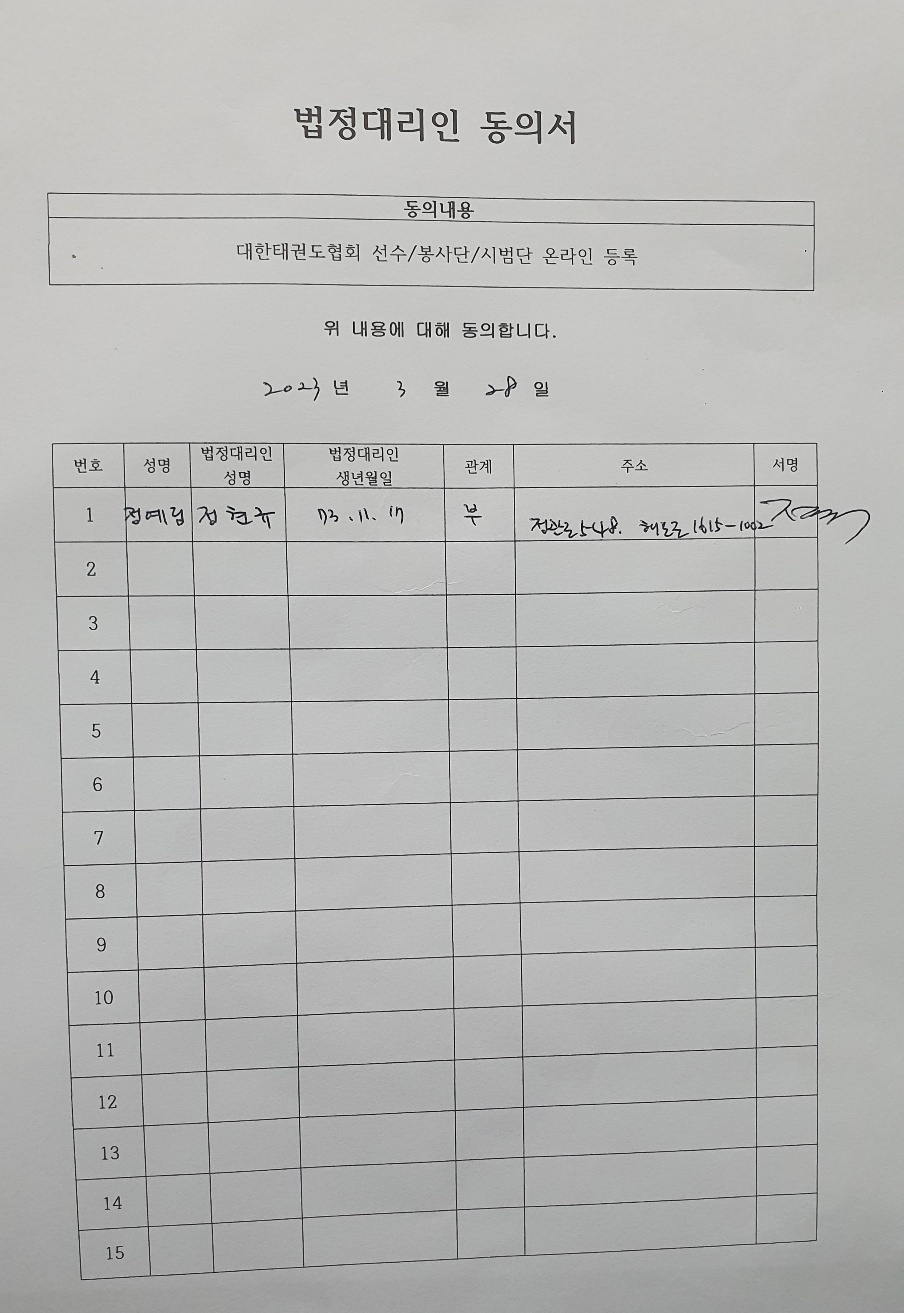 법정대리인 동의서
동의내용
대한태권도협회 선수/봉사단/시범단 온라인 등록
위 내용에 대해 동의합니다.
2023 년 3 월 28 일
번호 성명 법정대리인 성명 법정대리인 생년월일 관계 주소 서명
1 정예림 정현규 73.11.17 부 정관로548. 1615-1002
2
3
4
5
6
7
8
9
10
11
12
13
14
15